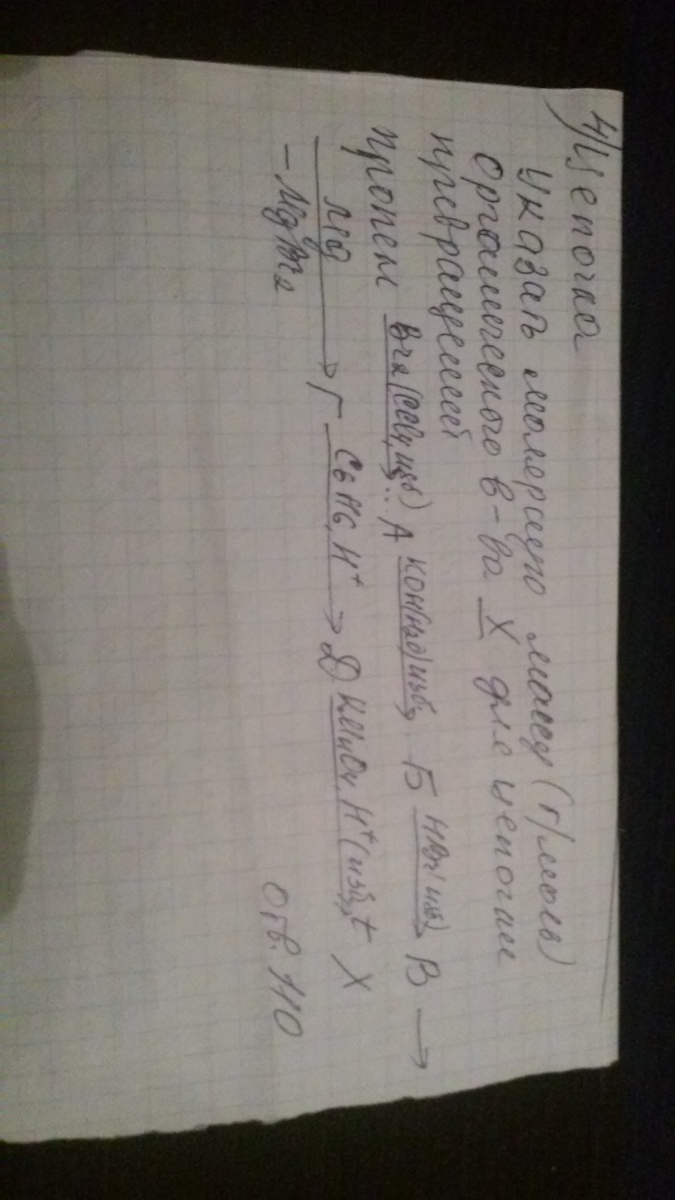 4) Цепочка
Указать молярную массу (г/моль)
органического в-ва X для цепочки
превращений
пропен Br₂(CCl₄, изб) А KOH(H₂O) изб Б HBr(изб) В →
Mg -MgBr₂ → Г C₆H₆, H⁺ → Д KMnO₄, H⁺(изб), t X
Отв. 110